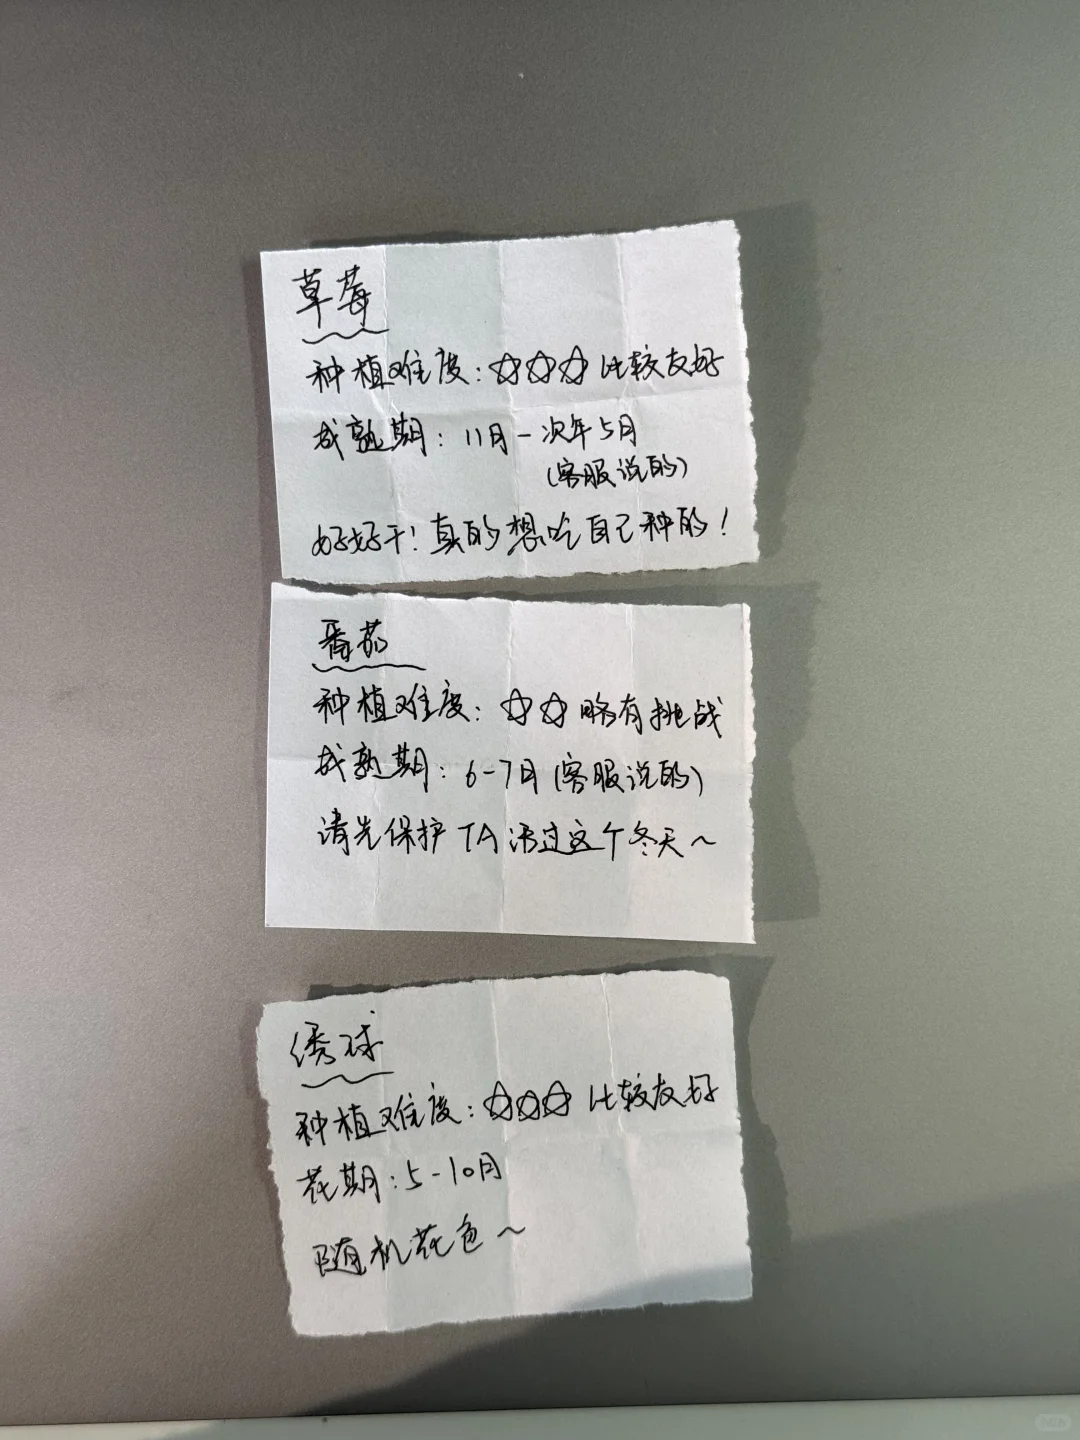 草莓
种植难度：☆☆☆ 比较友好
成熟期：11月－次年5月
(客服说的)
好好干！真的想吃自己种的！
番茄
种植难度：☆☆ 略有挑战
成熟期：6-7月(客服说的)
请先保护TA活过这个冬天～
绣球
种植难度：☆☆☆ 比较友好
花期：5-10月
随机花色～